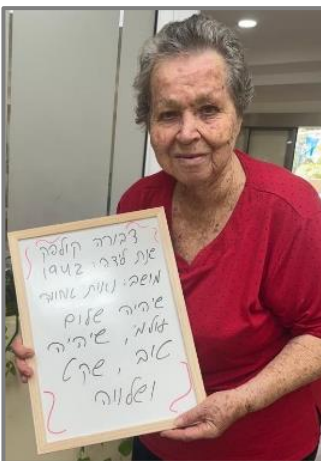 דבורה קולפק
שנת לידה: 1942
מושב: נאות
שיהיה שלום
עולמי, שיהיה
טוב, שקט
ושלווה